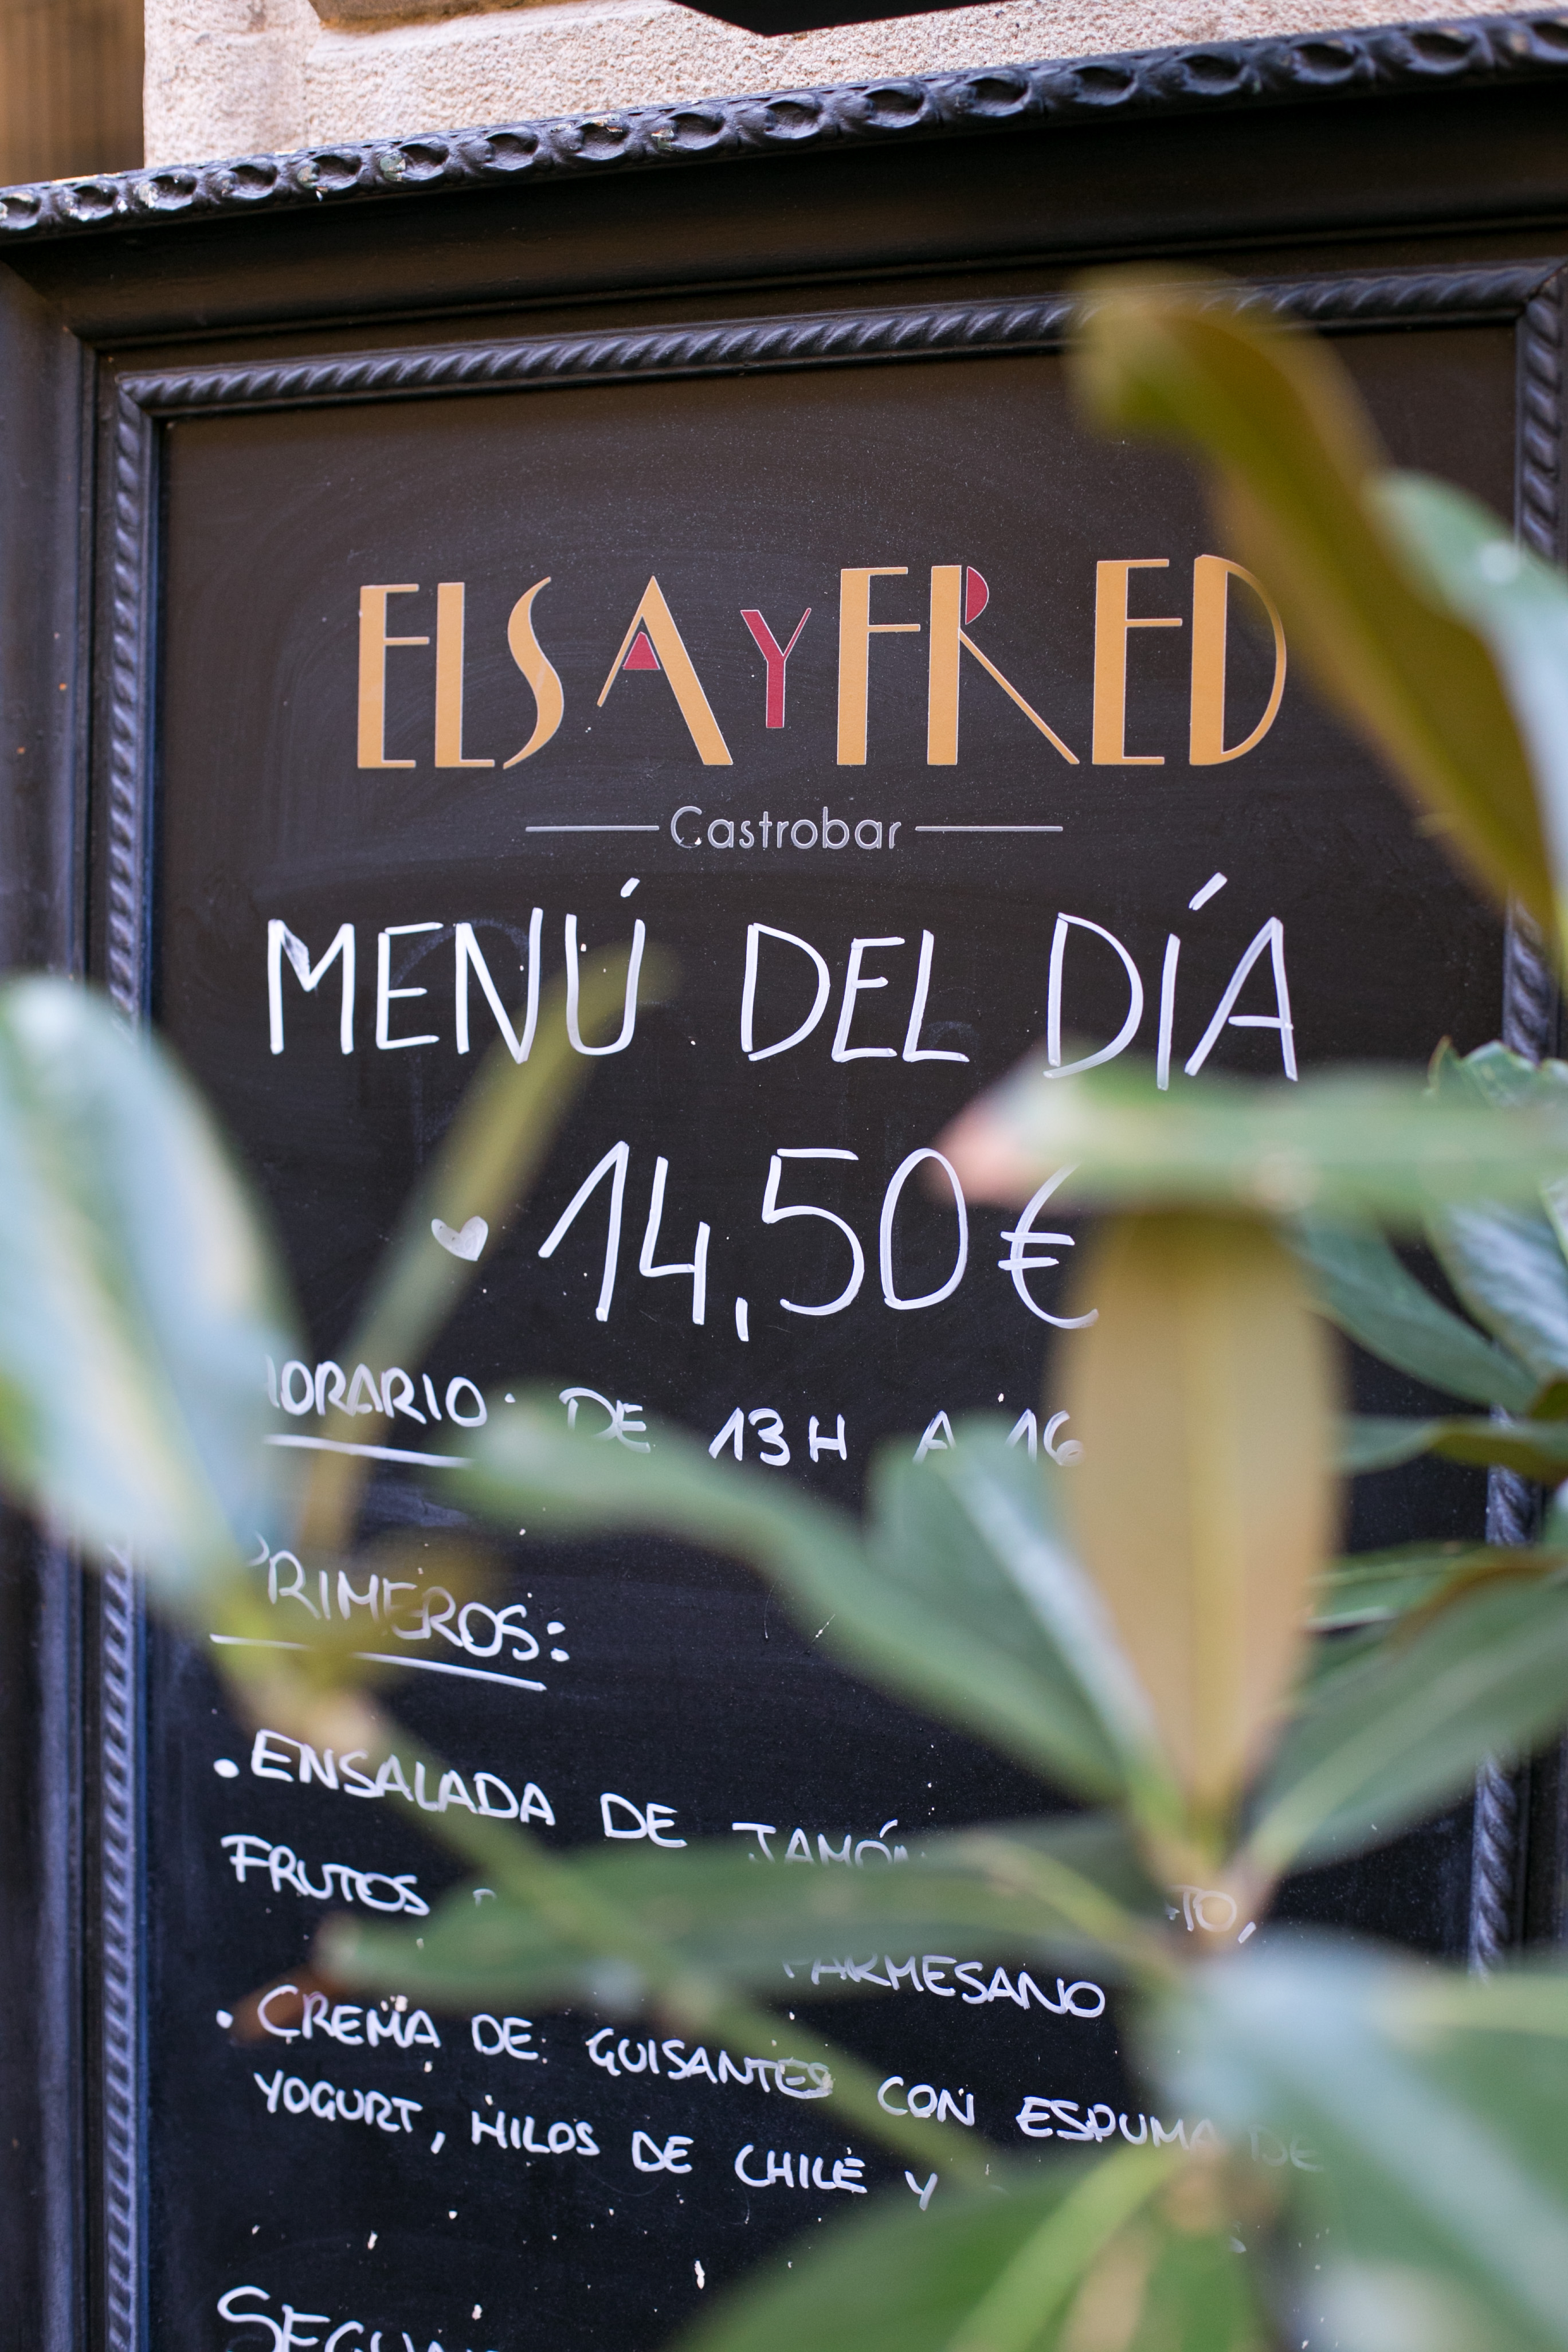 ELSA Y FRED
Castrobar
MENÚ DEL DÍA
14,50€
DE 13H A 16
PRIMEROS:
• ENSALADA DE JAMÓN
FRUTOS
PARMESANO
• CREMA DE GUISANTES CON ESPUMA DE
YOGURT, HILOS DE CHILE Y